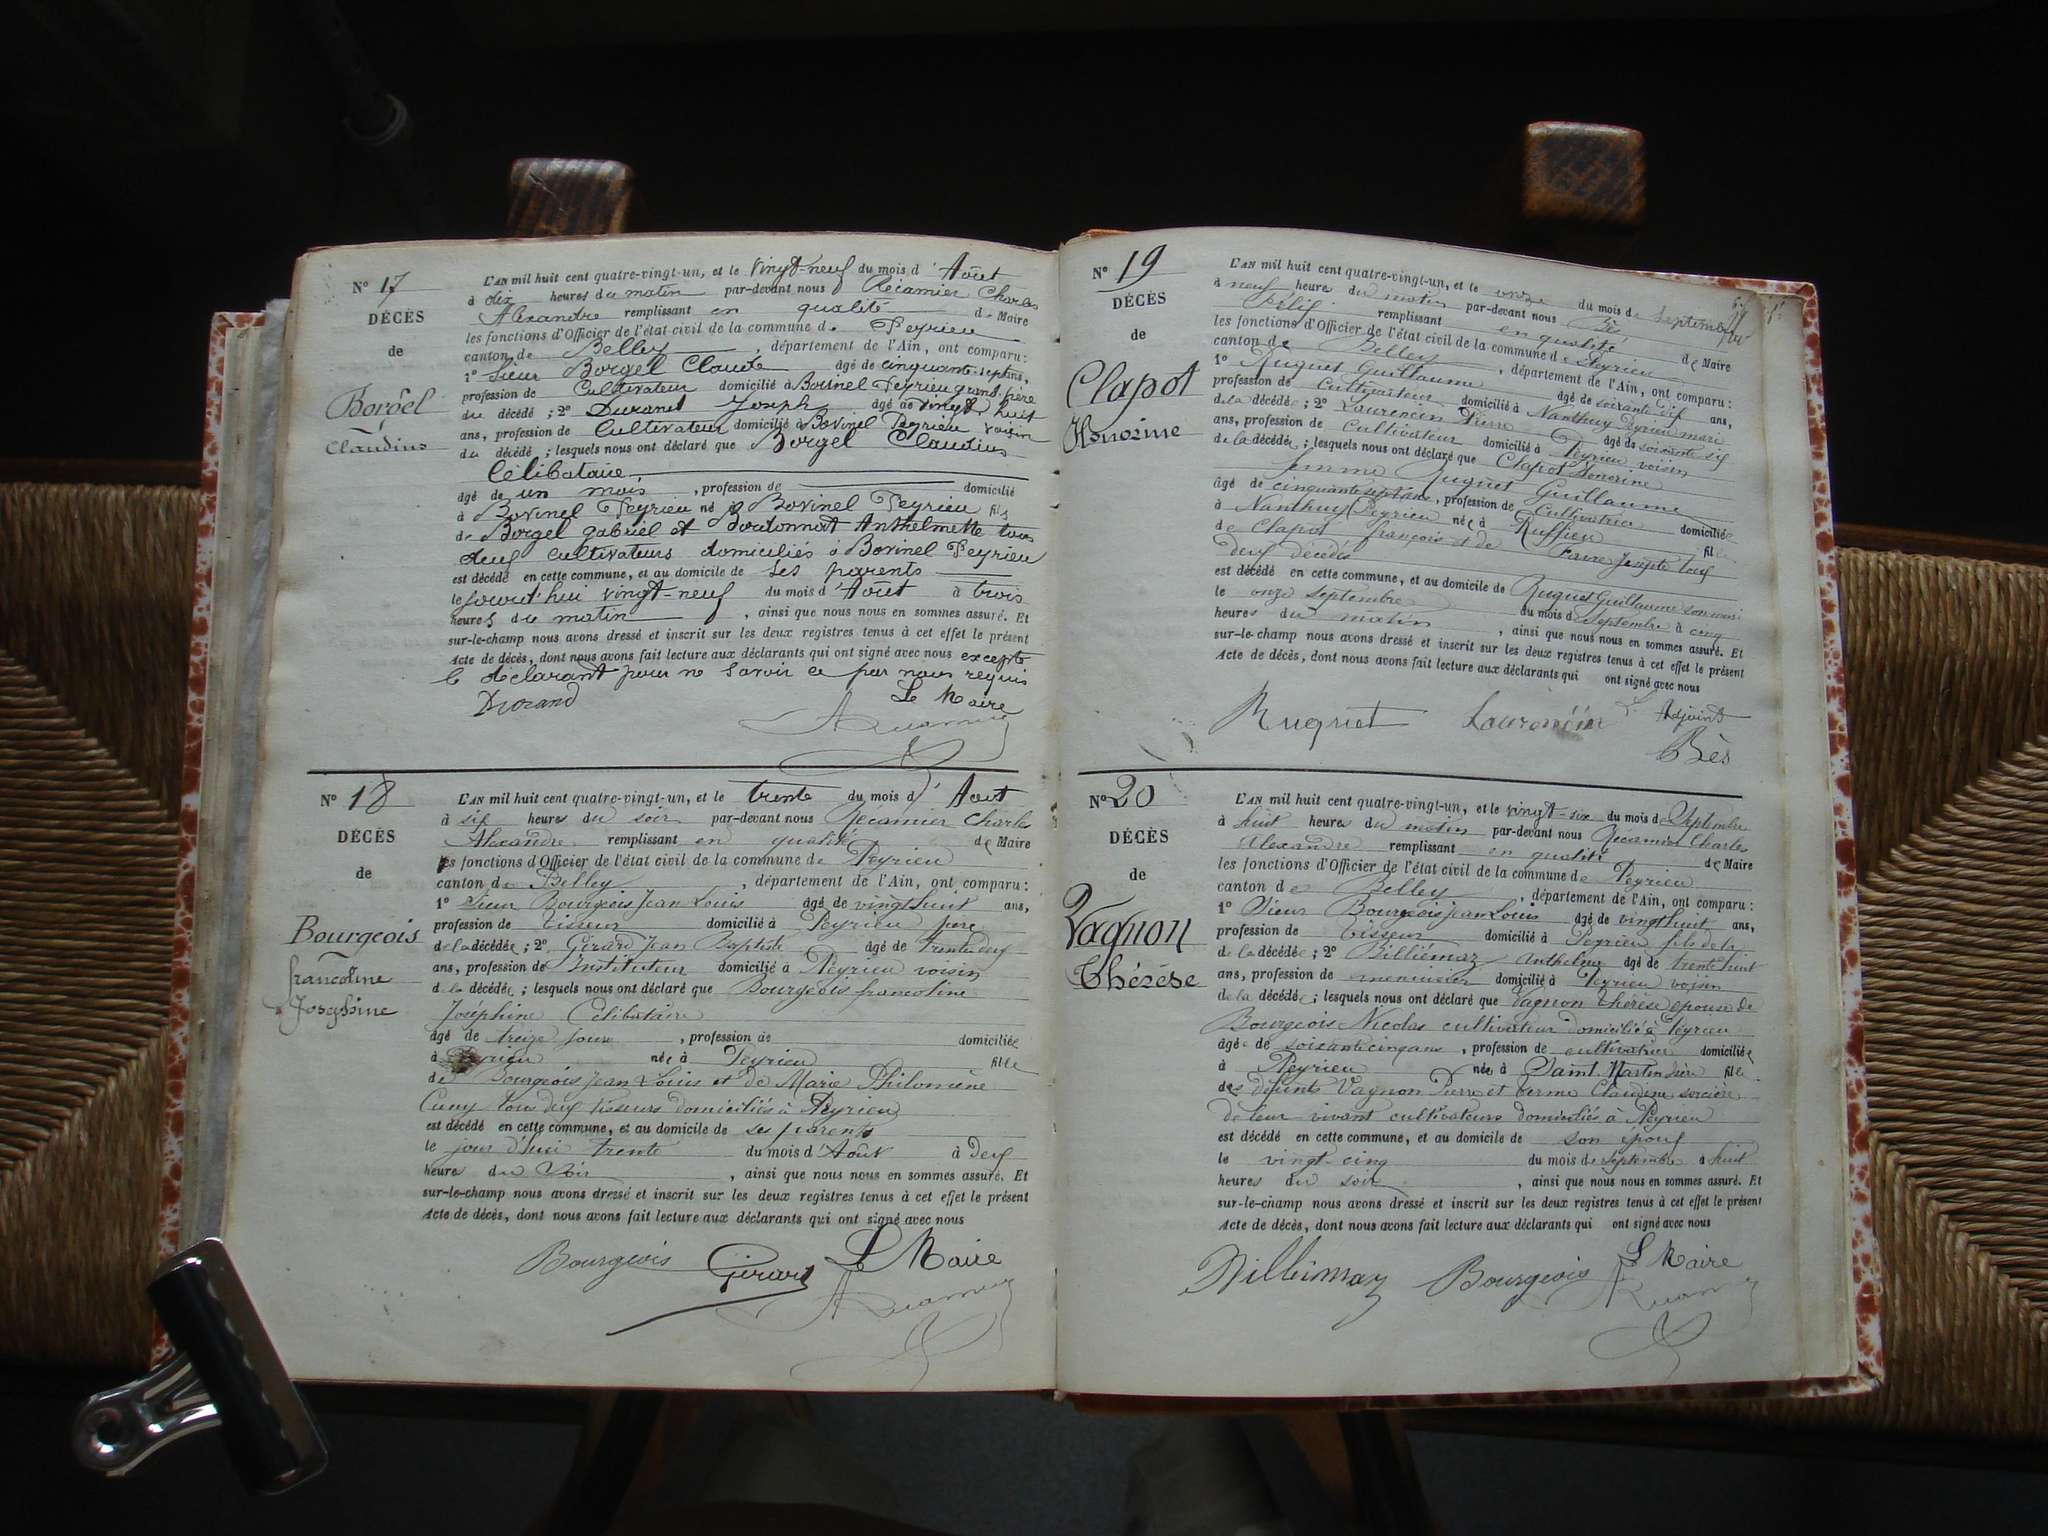 N° 17
DÉCÈS
de
Borgel
Claudius
L'AN mil huit cent quatre-vingt-un, et le vingt-neuf du mois d'Août
à dix heures du matin par-devant nous Récamier Charles
Alexandre remplissant en qualité de Maire
les fonctions d'Officier de l'état civil de la commune de Peyrieu
canton de Belley, département de l'Ain, ont comparu:
1° Sieur Borgel Claude âgé de cinquante-sept ans,
profession de Cultivateur domicilié à Bovinel Peyrieu grand-père
du décédé; 2° Durand Joseph âgé de vingt huit
ans, profession de Cultivateur domicilié à Bovinel Peyrieu voisin
du décédé; lesquels nous ont déclaré que Borgel Claudius
Célibataire,
âgé de un mois, profession de domicilié
à Bovinel Peyrieu né à Bovinel Peyrieu fils
de Borgel gabriel et Anthelmette tous
deux cultivateurs domiciliés à Bovinel Peyrieu
est décédé en cette commune, et au domicile de ses parents
le jourd'hui vingt-neuf du mois d'Août à trois
heures du matin, ainsi que nous nous en sommes assuré. Et
sur-le-champ nous avons dressé et inscrit sur les deux registres tenus à cet effet le présent
Acte de décès, dont nous avons fait lecture aux déclarants qui ont signé avec nous excepté
le déclarant pour ne savoir ce par nous requis
Durand Le Maire
N° 18
DÉCÈS
de
Bourgeois
francoline
Joséphine
L'AN mil huit cent quatre-vingt-un, et le trente du mois d'Août
à six heures du soir par-devant nous Récamier Charles
Alexandre remplissant en qualité de Maire
les fonctions d'Officier de l'état civil de la commune de Peyrieu
canton de Belley, département de l'Ain, ont comparu:
1° Sieur Bourgeois Jean Louis âgé de vingt huit ans,
profession de tisseur domicilié à Peyrieu père
de la décédée; 2° Gérard Jean Baptiste âgé de trente deux
ans, profession de Instituteur domicilié à Peyrieu voisin
de la décédée; lesquels nous ont déclaré que Bourgeois francoline
Joséphine Célibataire
âgé de treize jours, profession de domiciliée
à Peyrieu née à Peyrieu fille
de Bourgeois Jean Louis et de Marie Philomène
Cuny tous deux tisseurs domiciliés à Peyrieu
est décédé en cette commune, et au domicile de ses parents
le jour d'hui trente du mois d'Août à Deux
heures du soir, ainsi que nous nous en sommes assuré. Et
sur-le-champ nous avons dressé et inscrit sur les deux registres tenus à cet effet le présent
Acte de décès, dont nous avons fait lecture aux déclarants qui ont signé avec nous
Bourgeois Gérard Le Maire
N° 19
DÉCÈS
de
Clapot
Honorine
L'AN mil huit cent quatre-vingt-un, et le onze du mois de Septembre
à neuf heures du matin par-devant nous Bès
Félix remplissant en qualité de Maire
les fonctions d'Officier de l'état civil de la commune de Peyrieu
canton de Belley, département de l'Ain, ont comparu:
1° Ruguet Guillaume âgé de soixante dix ans,
profession de Cultivateur domicilié à Nanthuy Peyrieu mari
de la décédée; 2° Laurencin Pierre âgé de soixante six
ans, profession de Cultivateur domicilié à Peyrieu voisin
de la décédée; lesquels nous ont déclaré que Clapot Honorine
femme Ruguet Guillaume
âgé de cinquante sept ans, profession de Cultivatrice domiciliée
à Nanthuy Peyrieu née à Ruffieu fille
de Clapot françois et de tous
deux décédés
est décédé en cette commune, et au domicile de Ruguet Guillaume son mari
le onze Septembre du mois de Septembre à cinq
heures du matin, ainsi que nous nous en sommes assuré. Et
sur-le-champ nous avons dressé et inscrit sur les deux registres tenus à cet effet le présent
Acte de décès, dont nous avons fait lecture aux déclarants qui ont signé avec nous
Ruguet Laurencin L'Adjoint
Bès
N° 20
DÉCÈS
de
Vagnon
Thérèse
L'AN mil huit cent quatre-vingt-un, et le vingt-six du mois de Septembre
à huit heures du matin par-devant nous Récamier Charles
Alexandre remplissant en qualité de Maire
les fonctions d'Officier de l'état civil de la commune de Peyrieu
canton de Belley, département de l'Ain, ont comparu:
1° Sieur Bourgeois Jean Louis âgé de vingt huit ans,
profession de tisseur domicilié à Peyrieu fils de la
de la décédée; 2° Billiémaz Anthelme âgé de trente huit
ans, profession de menuisier domicilié à Peyrieu voisin
de la décédée; lesquels nous ont déclaré que Vagnon Thérèse épouse de
Bourgeois Nicolas cultivateur domicilié à Peyrieu
âgé de soixante cinq ans, profession de cultivatrice domiciliée
à Peyrieu née à Saint Martin fille
des défunts Vagnon Pierre et Claudine
de leur vivant cultivateurs domiciliés à Peyrieu
est décédé en cette commune, et au domicile de son époux
le vingt-cinq du mois de septembre à huit
heures du soir, ainsi que nous nous en sommes assuré. Et
sur-le-champ nous avons dressé et inscrit sur les deux registres tenus à cet effet le présent
Acte de décès, dont nous avons fait lecture aux déclarants qui ont signé avec nous
Billiémaz Bourgeois Le Maire